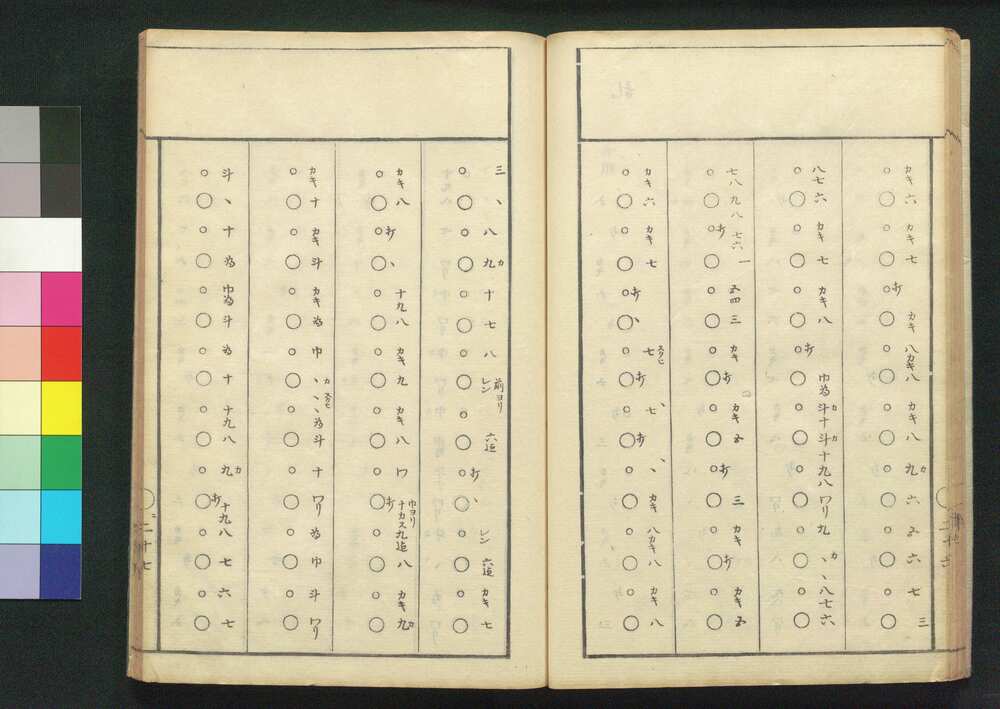 カキ 六 カキ 七 オ カキ 八 カキ 八 カキ 八 九 カ 六 五 六 七 三
八七 六 カキ 七 カキ 八 オ 巾 為 斗 カ 十 斗 カ 十 九 八 ワリ 九 ヽ カ ヽ 八 七 六
七 八 九 八 オ 七 六 一 五 四 三 カキ オ カキ 五 オ 三 カキ オ カキ 五
カキ 六 カキ 七 オ ヽ 七 スクヒ オ 七 ヽ オ ヽ カキ 八 カキ 八 カキ 八
二十六
三 ヽ 八 九 カ 十 七 八 レン 前ヨリ 六逗 オ ヽ レン 六逗 カキ 七
カキ 八 オ ヽ 十 九 八 カキ 九 カキ 八 ワ オ 巾ヨリ ナカス九逗 八 カキ 九 カ
カキ 十 カキ 斗 カキ 為 巾 ヽ カ ヽ スクヒ ヽ 為 斗 十 ワリ 為 巾 斗 ワリ
斗 ヽ 十 為 巾 為 斗 為 十 十 九 八 九 カ オ 十 九 八 七 六 七
二十七